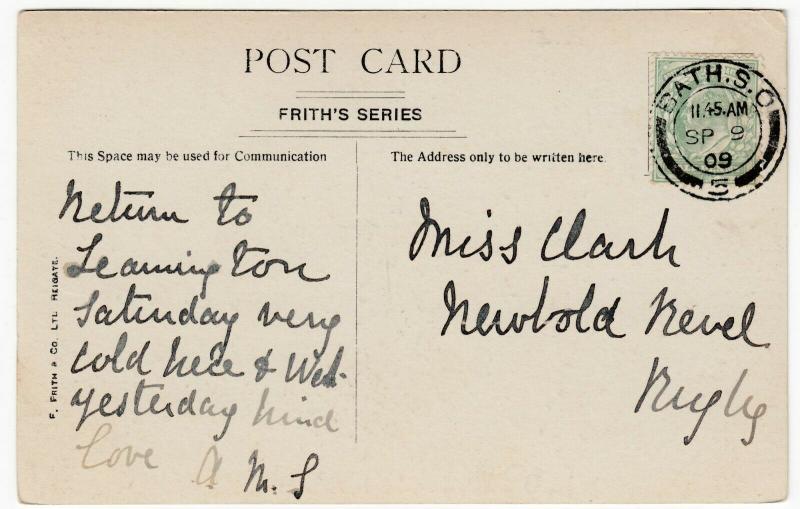 POST CARD
FRITH'S SERIES
This Space may be used for Communication
The Address only to be written here.
BATH. S.O
11.45.AM
SP 9
09
5
Return to
Leamington
Saturday very
cold here & Wet
yesterday kind
Love A M. S
Miss Clark
Newbold Revel
Rugby
F. FRITH & CO. LTD. REIGATE.